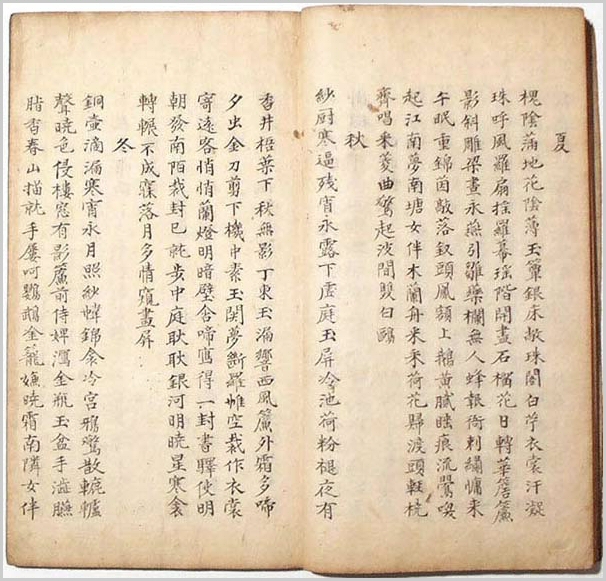 夏
槐陰滿地花陰薄玉簟銀床敞珠閣白苧衣裳汗凝
珠呼風羅扇搖羅幕瑤階開盡石榴花日轉華簷簾
影斜雕梁晝永燕引雛藥欄無人蜂報衙刺繡慵來
午眠重錦茵敲落釵頭鳳額上鵝黃膩睡痕流鶯喚
起江南夢南塘女伴木蘭舟采采荷花歸渡頭輕橈
齊唱采菱曲驚起波間雙白鷗
秋
紗厨寒逼残宵永露下虛庭玉屏冷池荷粉褪夜有
香井梧葉下秋無影丁東玉漏響西風簾外霜多啼
夕虫金刀剪下機中素玉關夢斷羅帷空裁作衣裳
寄遠客悄悄蘭燈明暗壁含啼寫得一封書驛使明
朝發南陌裁封已就步中庭耿耿銀河明曉星寒衾
轉輾不成寐落月多情窺畫屏
冬
銅壺滴漏寒宵永月照紗幃錦衾冷宮鴉驚散轆轤
聲曉色侵樓窓有影簾前侍婢瀉金瓶玉盆手澁臙
脂香春山描就手屢呵鸚鵡金籠嫌曉霜南隣女伴